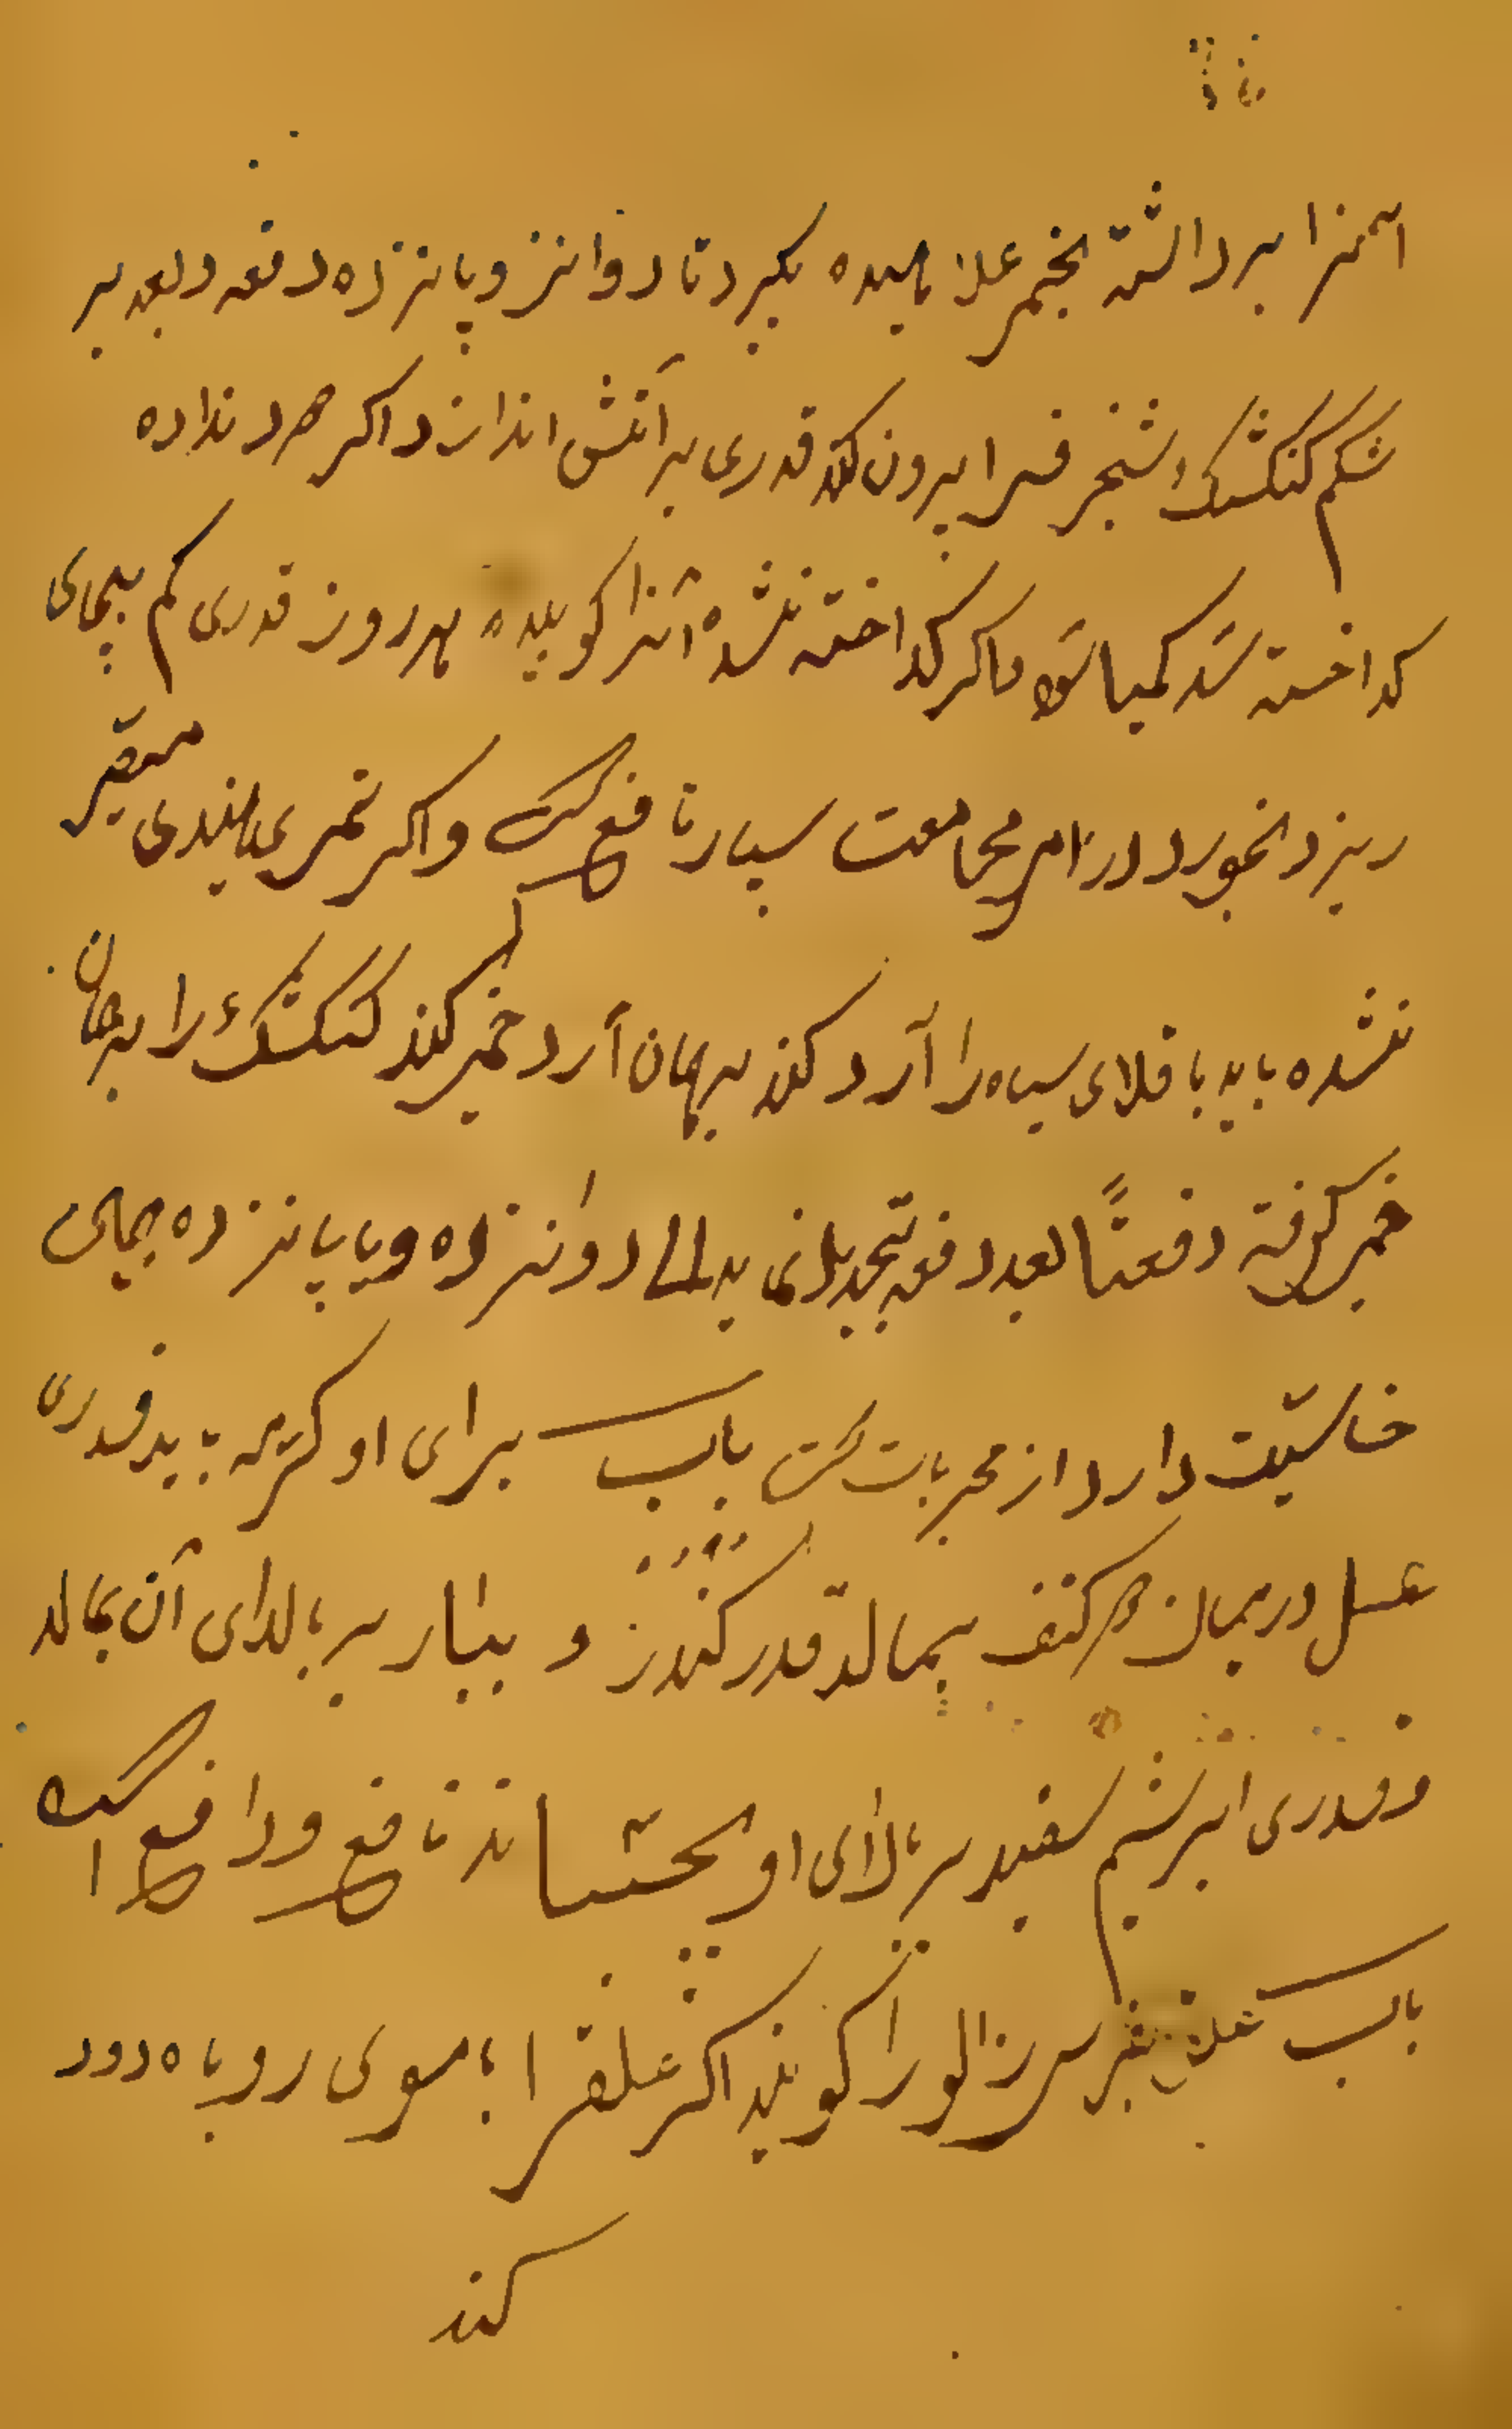 آنرا برداشته بخمر علا میده بگیرد تا دوانزو پانزاده دفعه و بعد بر
شکم کنکشک شنجرفرا بیرون کند قدری بر آتش اندازد اکر صرد نداده
کداخته شد کمیا شود ماکر کداخته نشده آنرا کو بیده بهر روز قدری کم بجای
ریزد بخورد در امر مجامعت بسیار نافع است واکر تمری هندی میقر
نشده باید باقلای سیاه را آرد کند بر همان آرد خمیر کند کنکشک را بر همان
خمیر کرفته دفعتاً بعد دفعه تبدیل نماید دوانزاده ویا پانزده بجای
خاسیّت دارد از مجربات است باب برای او کریمه باید قدری
عسل در میان هر کتف بمالد قدر کندر و بیار بر بالای آن بمالد
وقدری ابریشم سفید بر بالای او بچشپاند نافع ودافع است
باب علة بر سر زالو را کویند اکر علقرا با موی روباه دود
کند